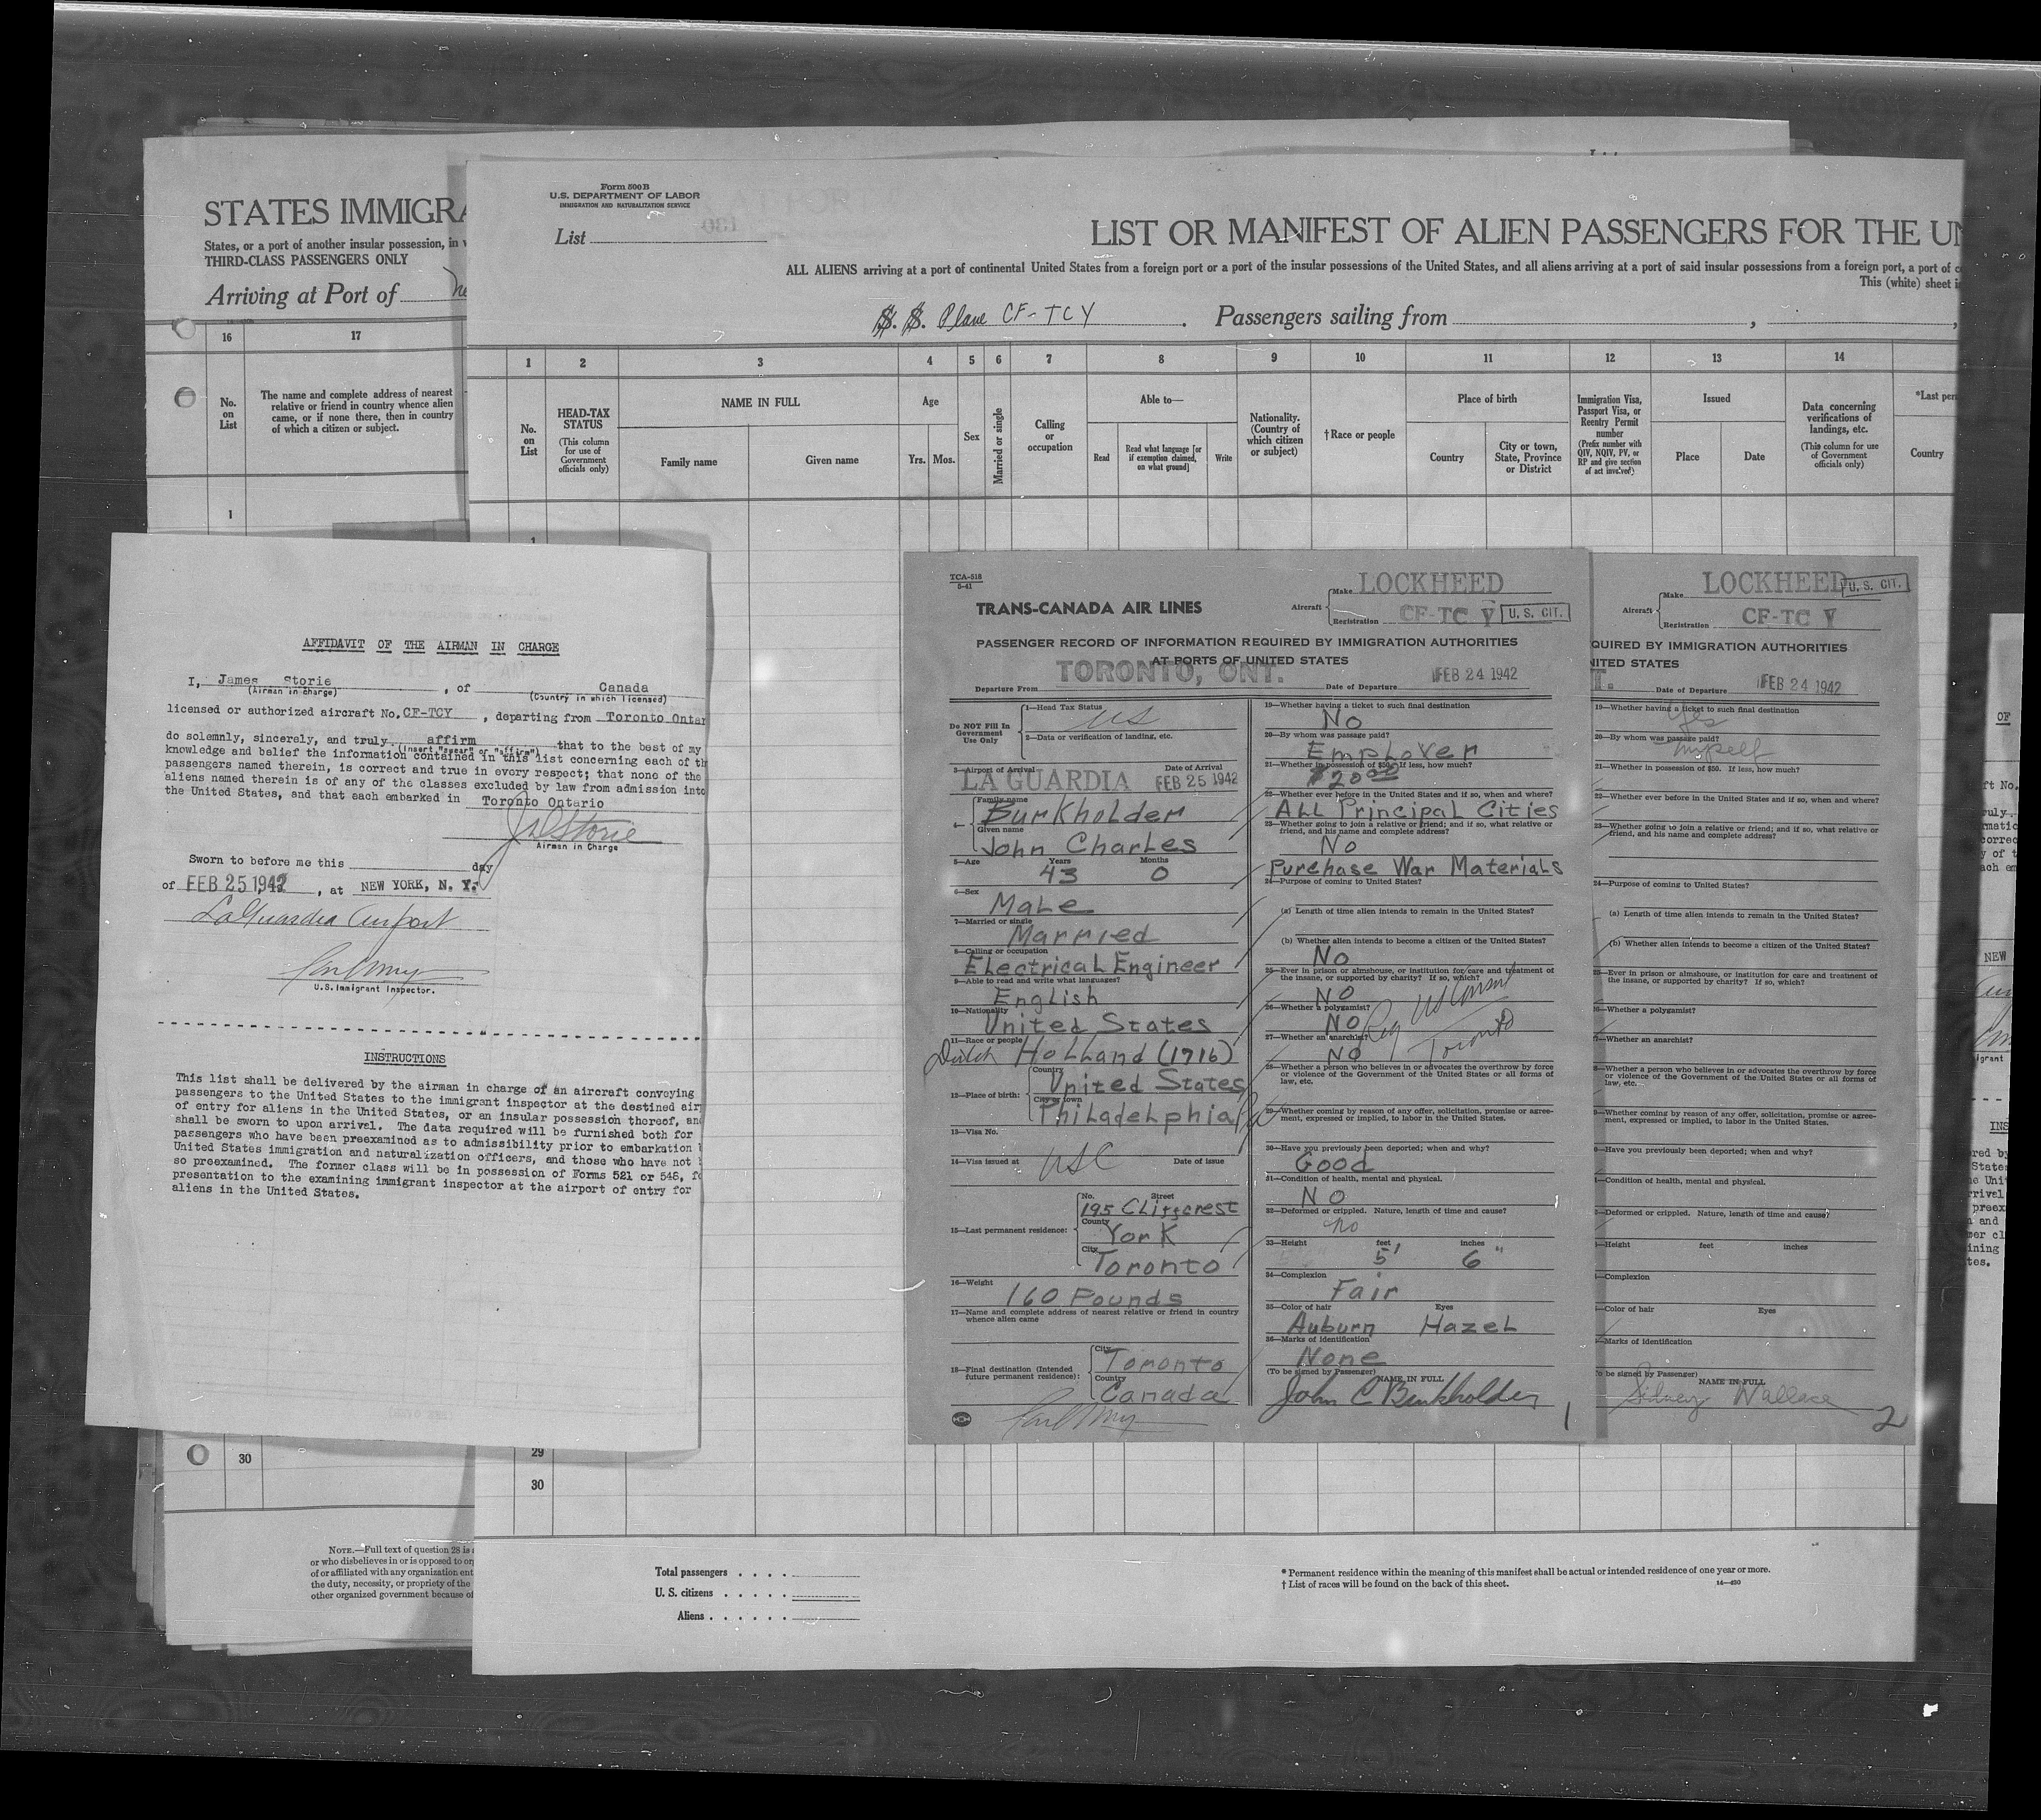 STATES IMMIGRA
States, or a port of another insular possession, in
THIRD-CLASS PASSENGERS ONLY
Arriving at Port of
16
17
No. on List
The name and complete address of nearest
relative or friend in country whence alien
came, or if none there, then in country
of which a citizen or subject.
1
30
NOTE.—Full text of question 28 is
or who disbelieves in or is opposed to or
of or affiliated with any organization ent
the duty, necessity, or propriety of the
other organized government because of
Form 500 B
U.S. DEPARTMENT OF LABOR
IMMIGRATION AND NATURALIZATION SERVICE
List
LIST OR MANIFEST OF ALIEN PASSENGERS FOR THE UN
ALL ALIENS arriving at a port of continental United States from a foreign port or a port of the insular possessions of the United States, and all aliens arriving at a port of said insular possessions from a foreign port, a port of
This (white) sheet i
S. S. Plane CF-TCY . Passengers sailing from , ,
1 2 3 4 5 6 7 8 9 10 11 12 13 14
No. on List
HEAD-TAX STATUS
(This column for use of Government officials only)
NAME IN FULL
Family name
Given name
Age
Yrs. Mos.
Sex
Married or single
Calling or occupation
Able to—
Read
Read what language [or if exemption claimed, on what ground]
Write
Nationality. (Country of which citizen or subject)
†Race or people
Place of birth
Country
City or town, State, Province or District
Immigration Visa, Passport Visa, or Reentry Permit number
(Prefix number with QIV, NQIV, PV, or RP and give section of act involved)
Issued
Place
Date
Data concerning verifications of landings, etc.
(This column for use of Government officials only)
*Last per
Country
1
29
30
Total passengers . . . .
U. S. citizens . . . . .
Aliens . . . . . .
* Permanent residence within the meaning of this manifest shall be actual or intended residence of one year or more.
† List of races will be found on the back of this sheet.
AFFIDAVIT OF THE AIRMAN IN CHARGE
I, James Storie , of Canada
(Airman in charge) (Country in which licensed)
licensed or authorized aircraft No. CF-TCY , departing from Toronto Ontar
do solemnly, sincerely, and truly affirm that to the best of my
(Insert "swear" or "affirm")
knowledge and belief the information contained in this list concerning each of th
passengers named therein, is correct and true in every respect; that none of the
aliens named therein is of any of the classes excluded by law from admission into
the United States, and that each embarked in Toronto Ontario
Storie
Airman in Charge
Sworn to before me this day
of FEB 25 1942 , at NEW YORK, N. Y.
LaGuardia Airport
U.S. Immigrant Inspector.
INSTRUCTIONS
This list shall be delivered by the airman in charge of an aircraft conveying
passengers to the United States to the immigrant inspector at the destined air
of entry for aliens in the United States, or an insular possession thereof, and
shall be sworn to upon arrival. The data required will be furnished both for
passengers who have been preexamined as to admissibility prior to embarkation
United States immigration and naturalization officers, and those who have not
so preexamined. The former class will be in possession of Forms 521 or 545, f
presentation to the examining immigrant inspector at the airport of entry for
aliens in the United States.
TCA-518
5-41
TRANS-CANADA AIR LINES
Aircraft
Make LOCKHEED
Registration CF-TC Y U. S. CIT.
PASSENGER RECORD OF INFORMATION REQUIRED BY IMMIGRATION AUTHORITIES
AT PORTS OF UNITED STATES
Departure From TORONTO, ONT. Date of Departure FEB 24 1942
Do NOT Fill In
Government
Use Only
1—Head Tax Status
US
2—Data or verification of landing, etc.
3—Airport of Arrival Date of Arrival
LA GUARDIA FEB 25 1942
4—
Family name
Burkholder
Given name
John Charles
5—Age Years Months
43 0
6—Sex
Male
7—Married or single
Married
8—Calling or occupation
Electrical Engineer
9—Able to read and write what languages?
English
10—Nationality
United States
11—Race or people
Dutch Holland (1716)
12—Place of birth:
Country
United States
City or town
Philadelphia Pa
13—Visa No.
14—Visa issued at Date of issue
USC
15—Last permanent residence:
No. Street
195 Cliffcrest
County
York
City
Toronto
16—Weight
160 Pounds
17—Name and complete address of nearest relative or friend in country
whence alien came
18—Final destination (Intended
future permanent residence):
City
Toronto
Country
Canada
19—Whether having a ticket to such final destination
No
20—By whom was passage paid?
Employer
21—Whether in possession of $50. If less, how much?
$20.00
22—Whether ever before in the United States and if so, when and where?
ALL Principal Cities
23—Whether going to join a relative or friend; and if so, what relative or
friend, and his name and complete address?
No
Purchase War Materials
24—Purpose of coming to United States?
(a) Length of time alien intends to remain in the United States?
(b) Whether alien intends to become a citizen of the United States?
No
25—Ever in prison or almshouse, or institution for care and treatment of
the insane, or supported by charity? If so, which?
No
26—Whether a polygamist?
No
Reg US Consul
Toronto
27—Whether an anarchist?
No
28—Whether a person who believes in or advocates the overthrow by force
or violence of the Government of the United States or all forms of
law, etc.
29—Whether coming by reason of any offer, solicitation, promise or agree-
ment, expressed or implied, to labor in the United States.
30—Have you previously been deported; when and why?
Good
31—Condition of health, mental and physical.
No
32—Deformed or crippled. Nature, length of time and cause?
no
33—Height feet inches
5' 6"
34—Complexion
Fair
35—Color of hair Eyes
Auburn Hazel
36—Marks of identification
None
(To be signed by Passenger) NAME IN FULL
John C Burkholder
1
Aircraft
Make LOCKHEED U. S. CIT.
Registration CF-TC Y
QUIRED BY IMMIGRATION AUTHORITIES
NITED STATES
T. Date of Departure FEB 24 1942
19—Whether having a ticket to such final destination
Yes
20—By whom was passage paid?
myself
21—Whether in possession of $50. If less, how much?
22—Whether ever before in the United States and if so, when and where?
23—Whether going to join a relative or friend; and if so, what relative or
friend, and his name and complete address?
24—Purpose of coming to United States?
(a) Length of time alien intends to remain in the United States?
(b) Whether alien intends to become a citizen of the United States?
25—Ever in prison or almshouse, or institution for care and treatment of
the insane, or supported by charity? If so, which?
—Whether a polygamist?
—Whether an anarchist?
—Whether a person who believes in or advocates the overthrow by force
or violence of the Government of the United States or all forms of
law, etc.
—Whether coming by reason of any offer, solicitation, promise or agree-
ment, expressed or implied, to labor in the United States.
—Have you previously been deported; when and why?
—Condition of health, mental and physical.
—Deformed or crippled. Nature, length of time and cause?
—Height feet inches
—Complexion
—Color of hair Eyes
—Marks of identification
To be signed by Passenger) NAME IN FULL
Sidney Wallace
2
OF
NEW
INS